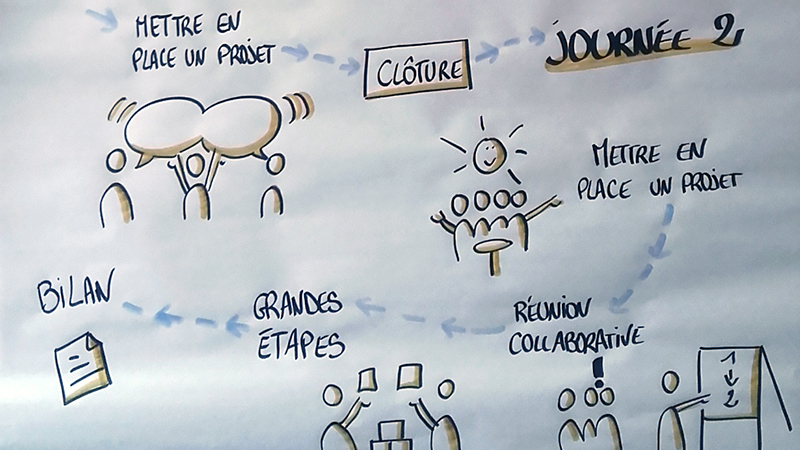 METTRE EN
PLACE UN PROJET
CLÔTURE
JOURNÉE 2
METTRE EN
PLACE UN PROJET
RÉUNION
COLLABORATIVE
!
1
2
GRANDES
ÉTAPES
BiLAN